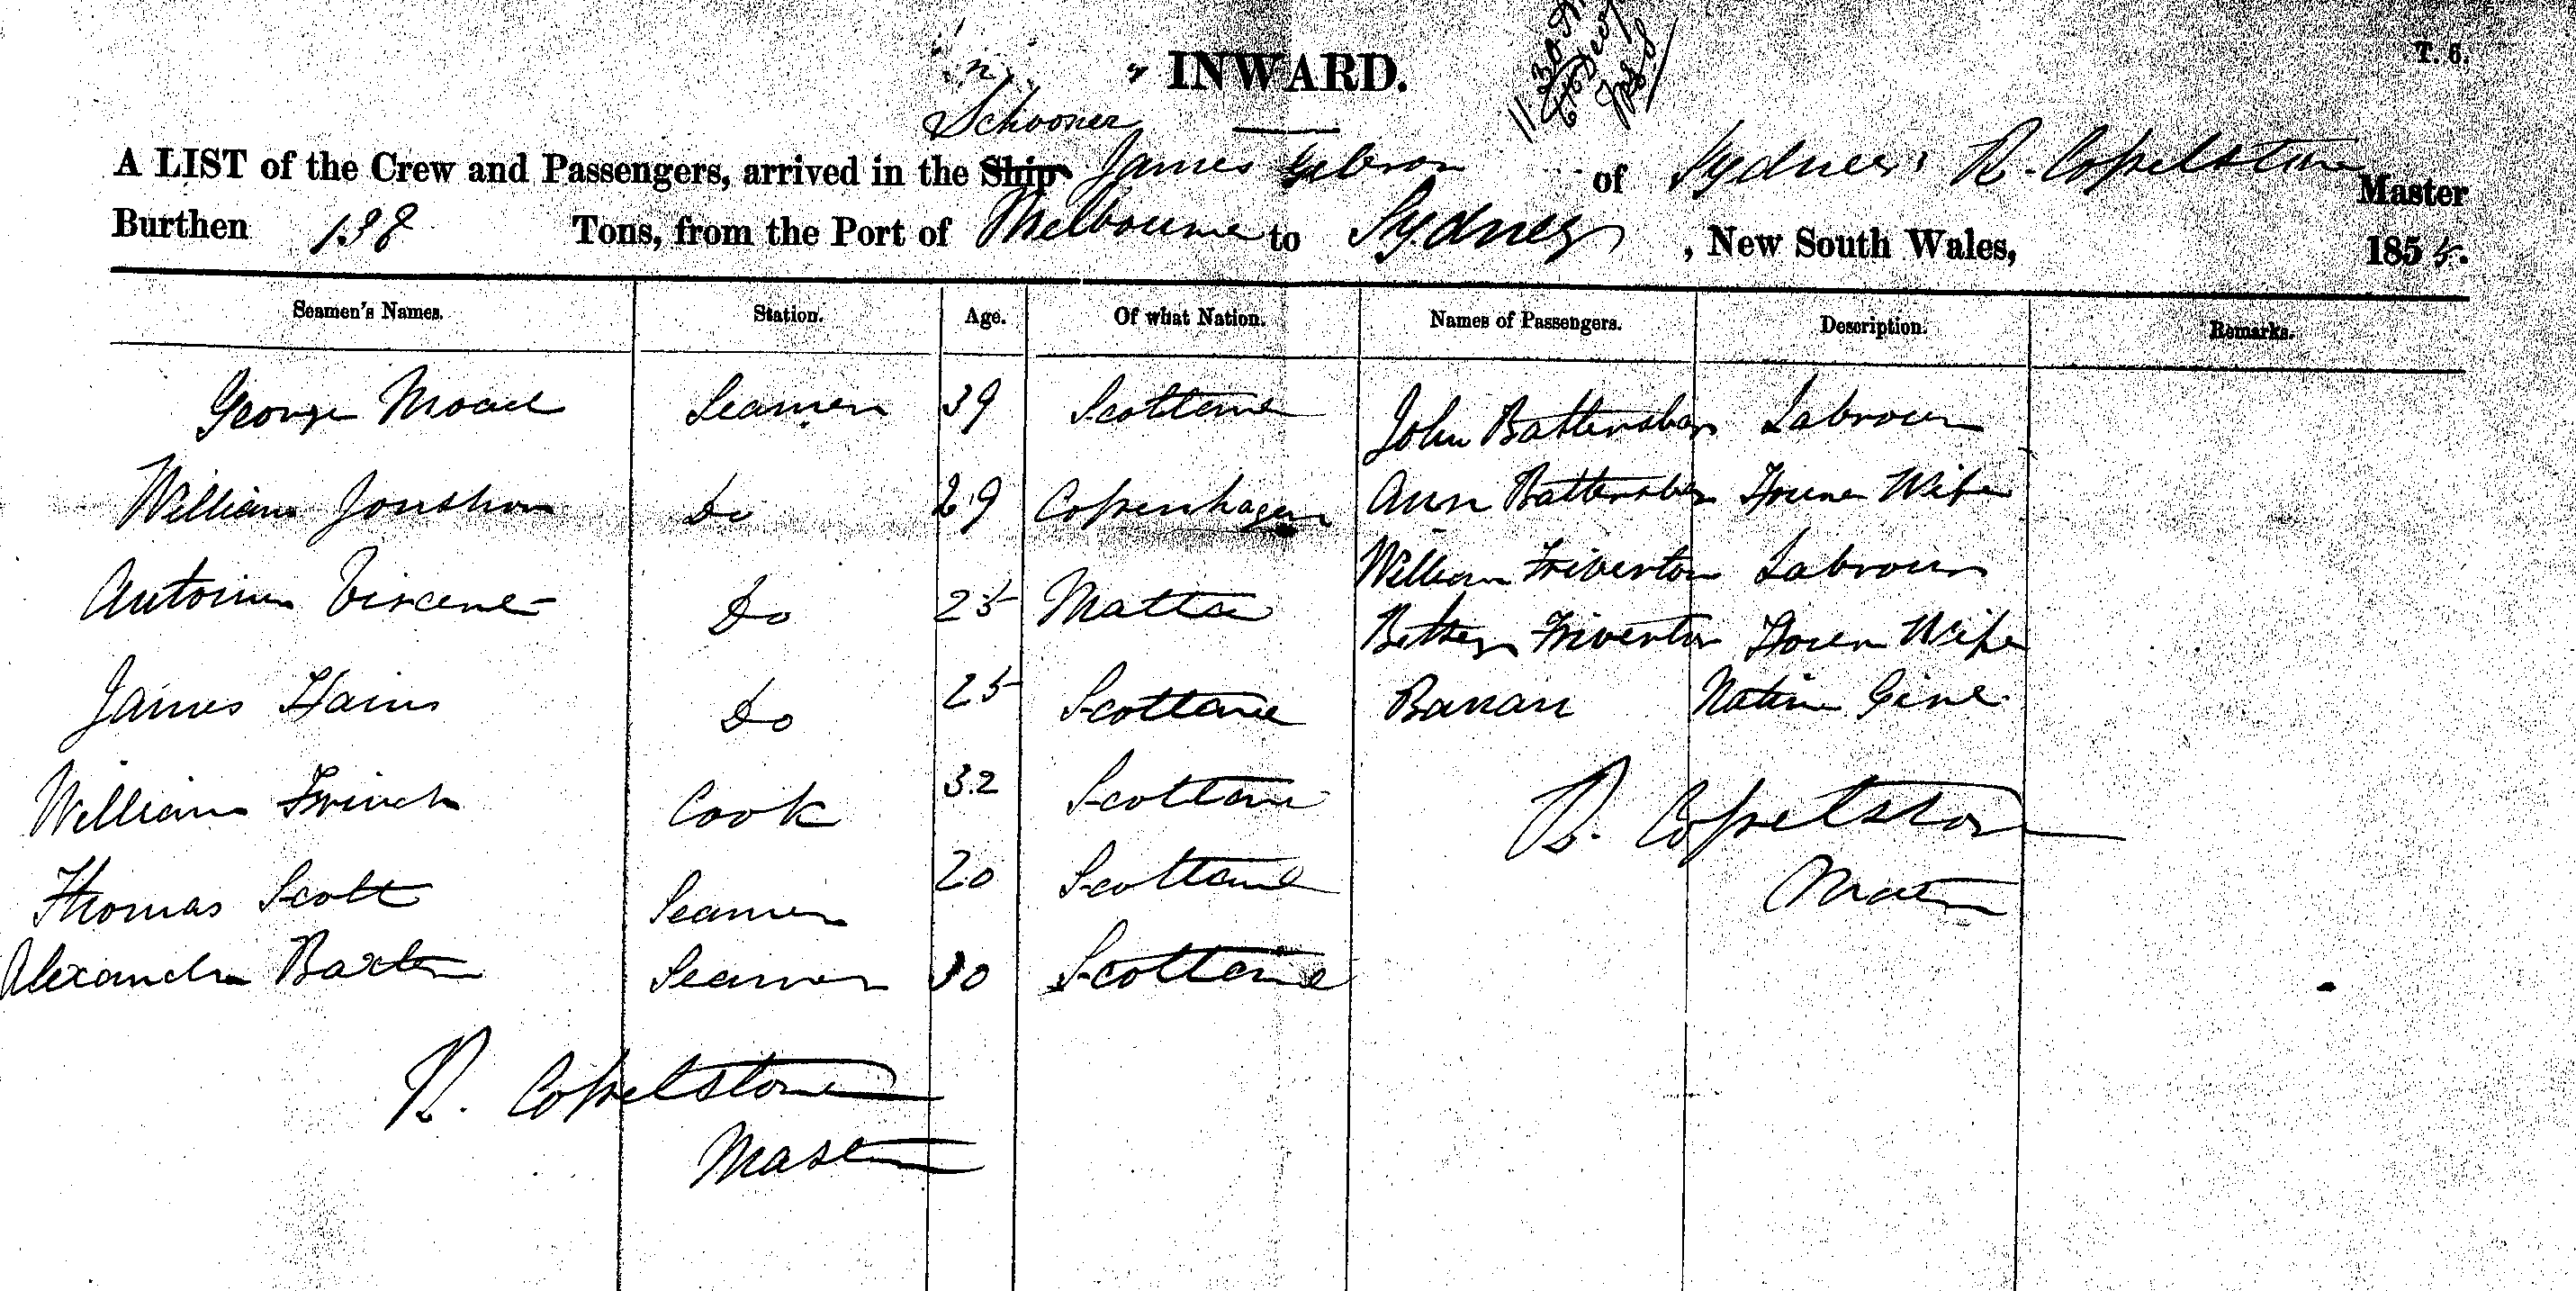 INWARD.
T. 6.
Schooner
A LIST of the Crew and Passengers, arrived in the Ship James Gibson of Sydney R. Copelstone Master
Burthen 138 Tons, from the Port of Melbourne to Sydney, New South Wales, 1855.
Seamen's Names. Station. Age. Of what Nation. Names of Passengers. Description. Remarks.
George Seamen 39 Scotland John Battersby Labrour
William Jonshon Do 29 Copenhagen Ann Battersby Wife
Do 25 Malta William Friverton Labrour
James Hains Do 25 Scotland Betsey Friverton Wife
Banan Native
William Cook 32 Scotland
Thomas Scott Seamen 20 Scotland
Alexander Baxter Seamen 30 Scotland
R. Copelston
Master
R. Copelstone
Master